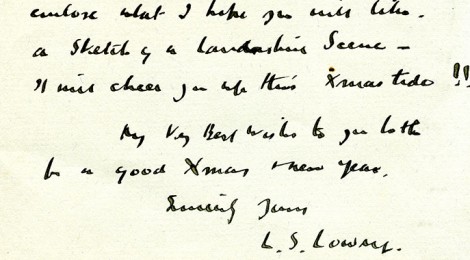 enclose what I hope you will like.
a Sketch of a Lancashire Scene -
It will cheer you up this Xmas tide !!
My Very Best Wishes to you both
for a good Xmas & new year.
Sincerely Yours
L. S. Lowry.